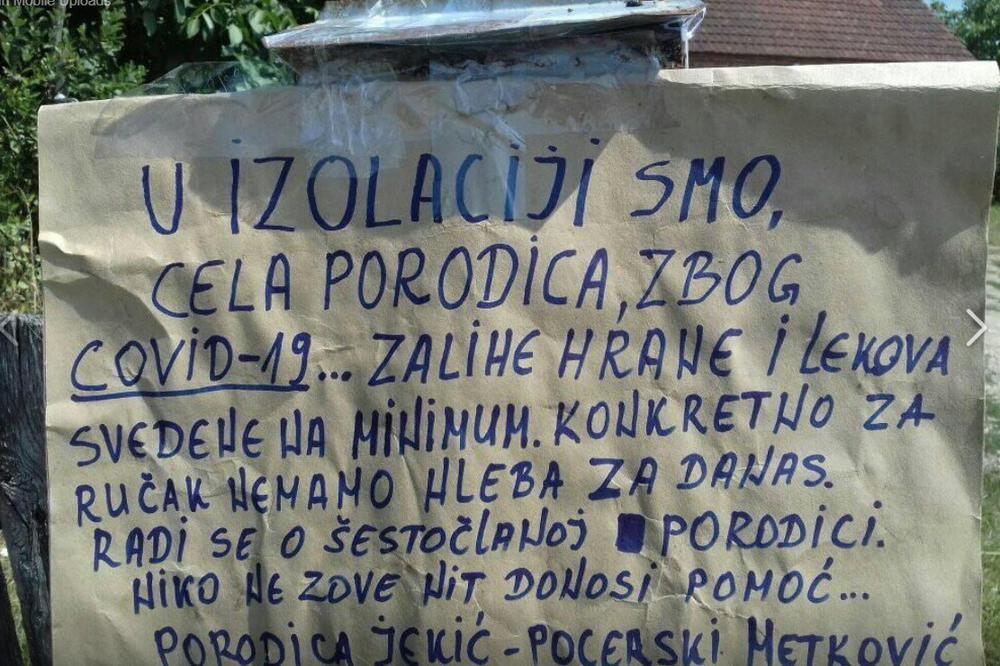 in Mobile Uploads
U IZOLACIJI SMO,
CELA PORODICA, ZBOG
COVID-19... ZALIHE HRANE I LEKOVA
SVEDENE NA MINIMUM. KONKRETNO ZA
RUČAK NEMAMO HLEBA ZA DANAS.
RADI SE O ŠESTOČLANOJ PORODICI.
NIKO NE ZOVE NIT DONOSI POMOĆ...
PORODICA JEKIĆ - POCERSKI METKOVIĆ